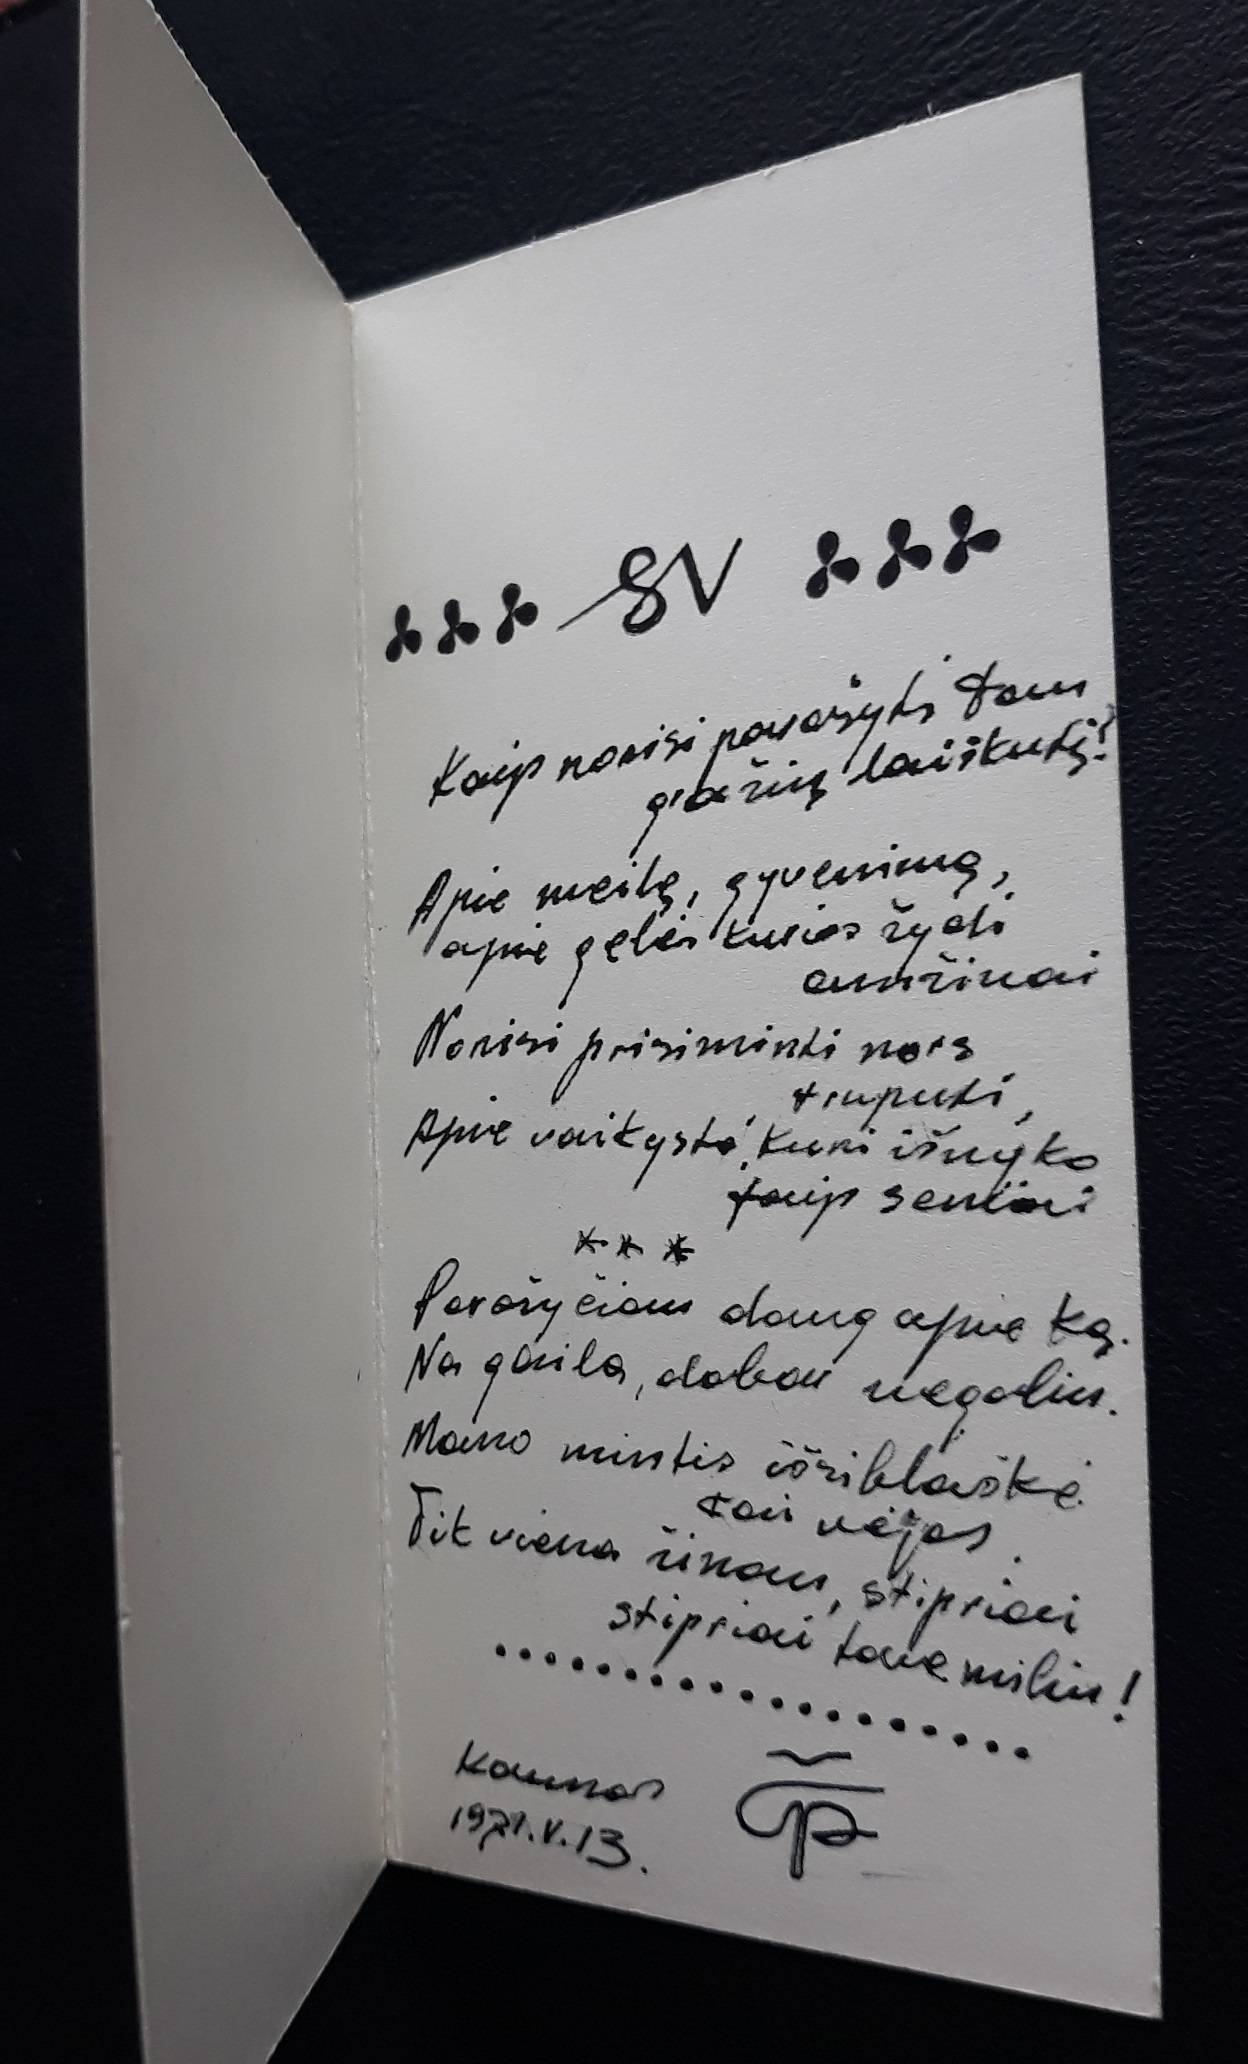 SV
Kaip norisi parašyti Tau
gražių laiškutį!
Apie meilę, gyvenimą,
apie gėlės kurios žydi
amžinai
Norisi prisiminti nors
truputi,
Apie vaikystė, kuri išnyko
taip seniai
* * *
Parašyčiau daug apie ką.
Na gaila, dabar negaliu.
Mano mintis išsiblaškė
tai vėjas.
Tik viena žinau, stipriai
stipriai tave miliu!
Kaunas
1971.V.13.